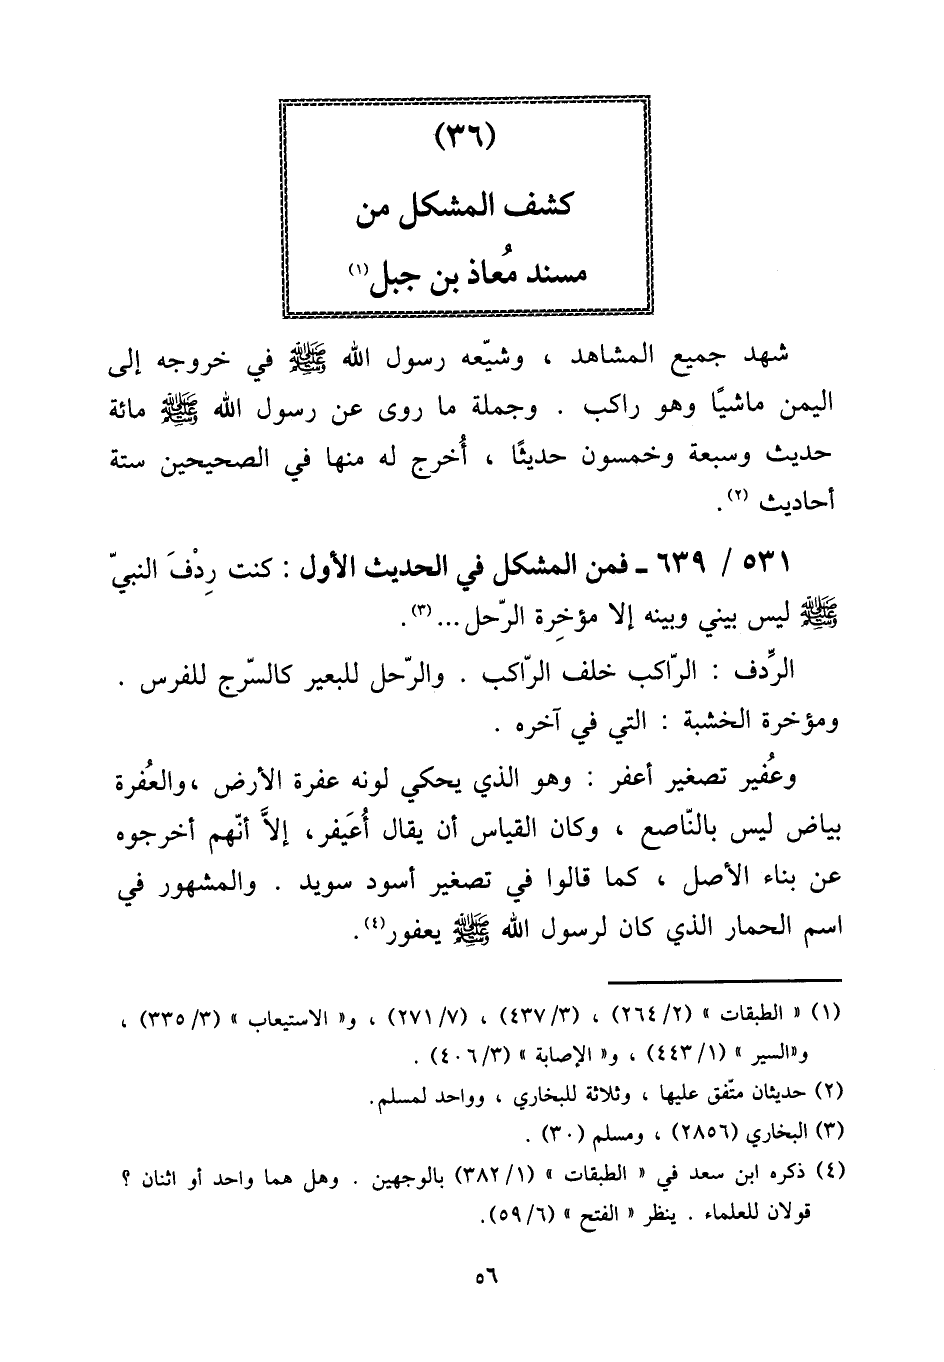 (٣٦)
كشف المشكل من
مسند مُعاذ بن جبل(١)
شهد جميع المشاهد ، وشيّعه رسول الله ﷺ في خروجه إلى
اليمن ماشيًا وهو راكب . وجملة ما روى عن رسول الله ﷺ مائة
حديث وسبعة وخمسون حديثًا ، أُخرج له منها في الصحيحين ستة
أحاديث (٢).
٥٣١ / ٦٣٩ ـ فمن المشكل في الحديث الأول : كنت رِدْفَ النبيّ
ﷺ ليس بيني وبينه إلا مؤخِرة الرّحل...(٣).
الرِّدف : الرّاكب خلف الرّاكب . والرّحل للبعير كالسّرج للفرس .
ومؤخرة الخشبة : التي في آخره .
وعُفير تصغير أعفر : وهو الذي يحكي لونه عفرة الأرض ،والعُفرة
بياض ليس بالنّاصع ، وكان القياس أن يقال أُعَيفر، إلاَّ أنّهم أخرجوه
عن بناء الأصل ، كما قالوا في تصغير أسود سويد . والمشهور في
اسم الحمار الذي كان لرسول الله ﷺ يعفور(٤).
(١) « الطبقات » (٢/ ٢٦٤) ، (٣/ ٤٣٧) ، (٧/ ٢٧١) ، و« الاستيعاب » (٣/ ٣٣٥) ،
و«السير » (١/ ٤٤٣) ، و« الإصابة » (٣/ ٤٠٦) .
(٢) حديثان متّفق عليها ، وثلاثة للبخاري ، وواحد لمسلم.
(٣) البخاري (٢٨٥٦) ، ومسلم (٣٠) .
(٤) ذكره ابن سعد في « الطبقات » (١/ ٣٨٢) بالوجهين . وهل هما واحد أو اثنان ؟
قولان للعلماء . ينظر « الفتح » (٦/ ٥٩).
٥٦